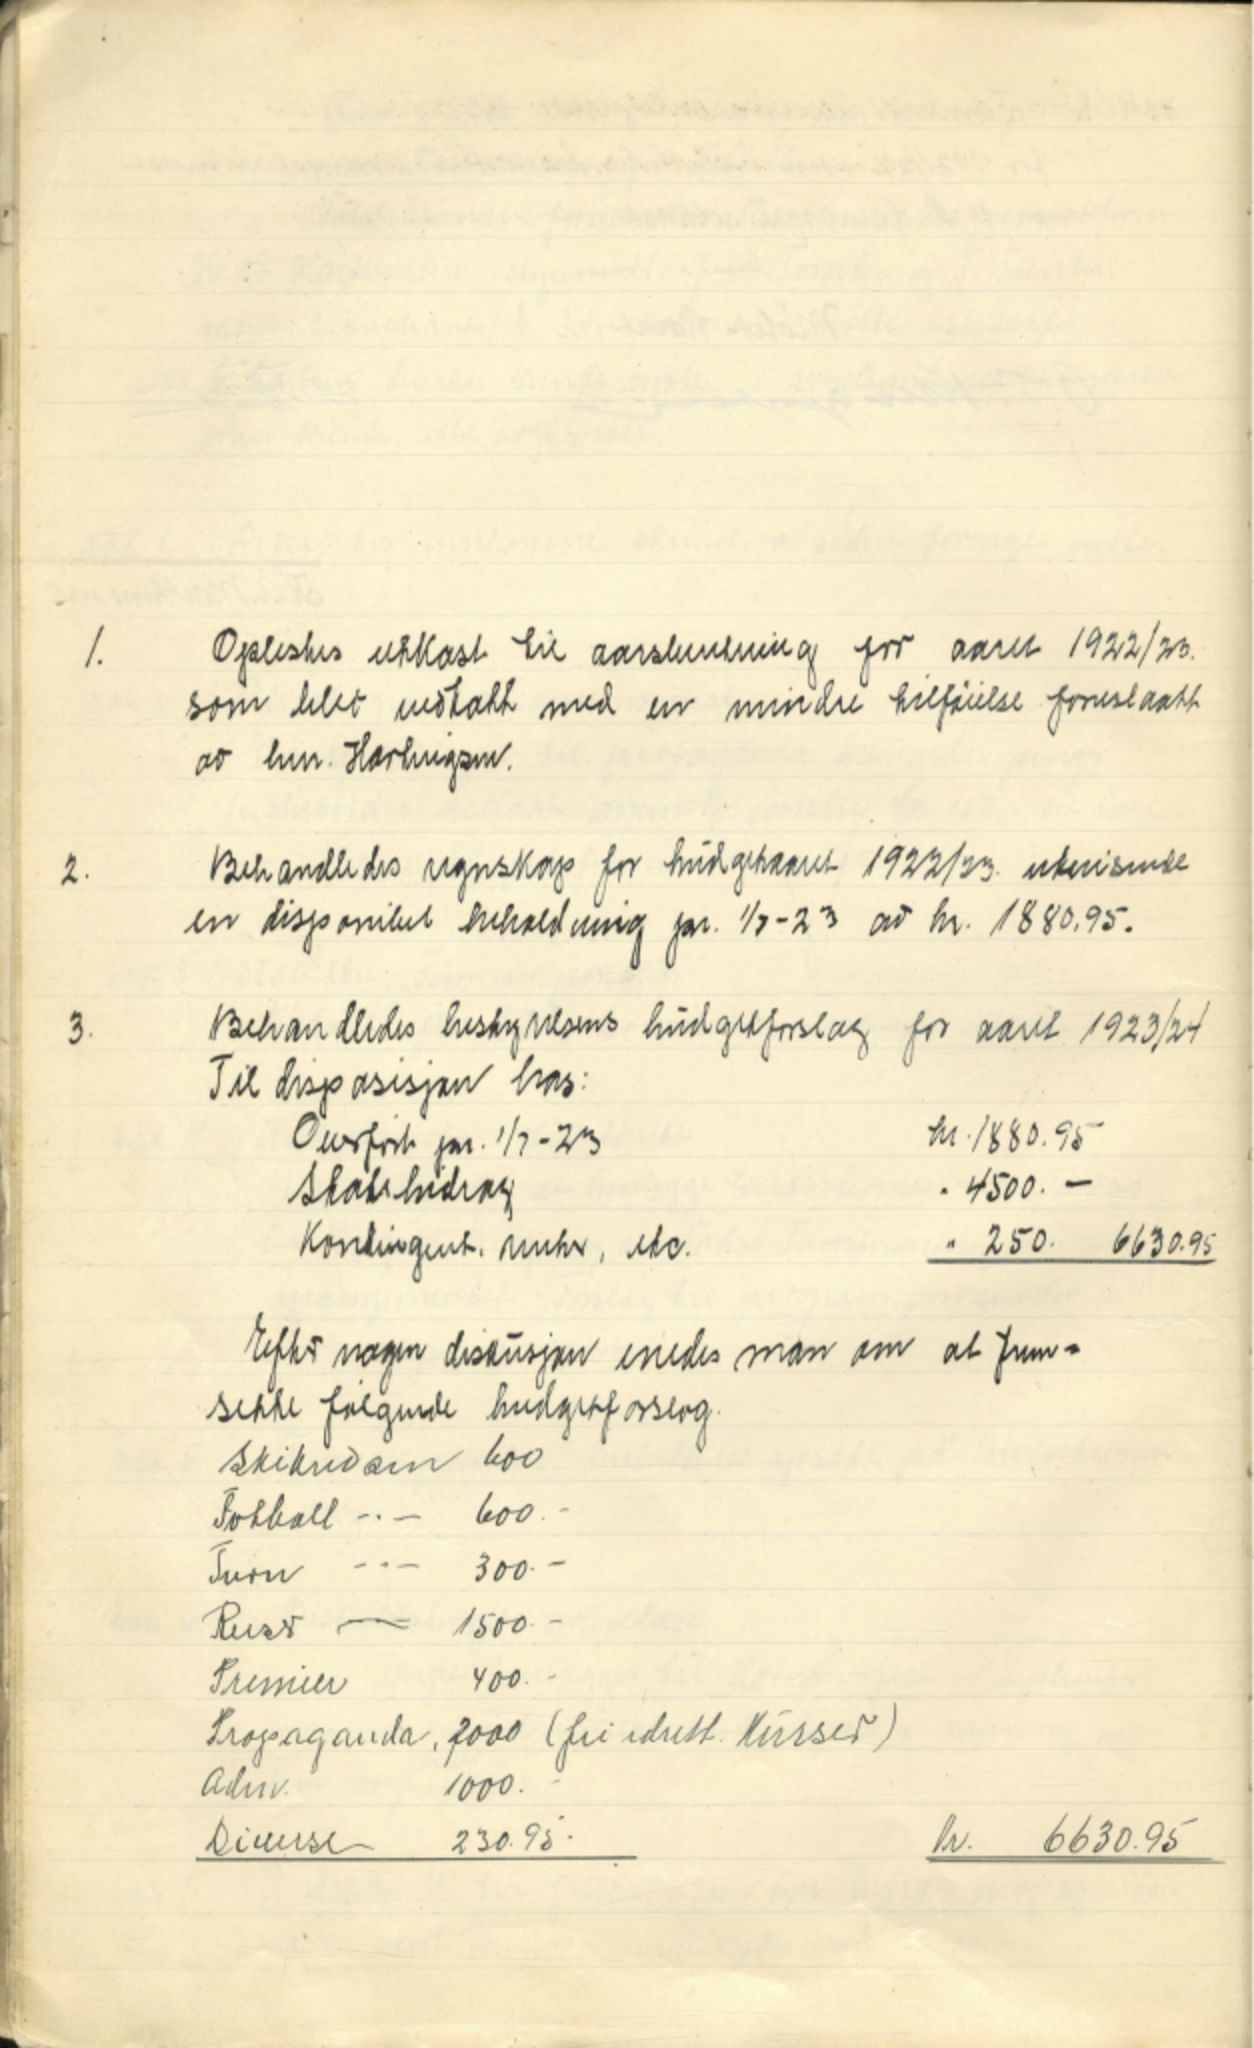 1. Oplestes utkast til aarsberetning for aaret 1922/23.
som blev vedtatt med en mindre tilføielse foreslaatt
av hrr. Hartvigsen.
2. Behandledes regnskap for budgetaaret 1922/23. utvisende
en disponibel beholdning pr. 1/7-23 av kr. 1880.95.
3. Behandledes bestyrelsens budgetforslag for aaret 1923/24
Til disposisjon has:
Overført pr. 1/7-23 kr. 1880.95
Statsbidrag " 4500.—
Kontingent. renter, etc. " 250. 6630.95
Efter nogen diskusjon enedes man om at frem-
sette følgende budgetforslag.
Skikredsen 600
Fotball -"- 600.-
Turn -"- 300.-
Reiser — 1500.-
Premier 400.-
Propaganda, 2000 (fri idrett. Kurser)
Adm. 1000.-
Diverse 230.95. kr. 6630.95